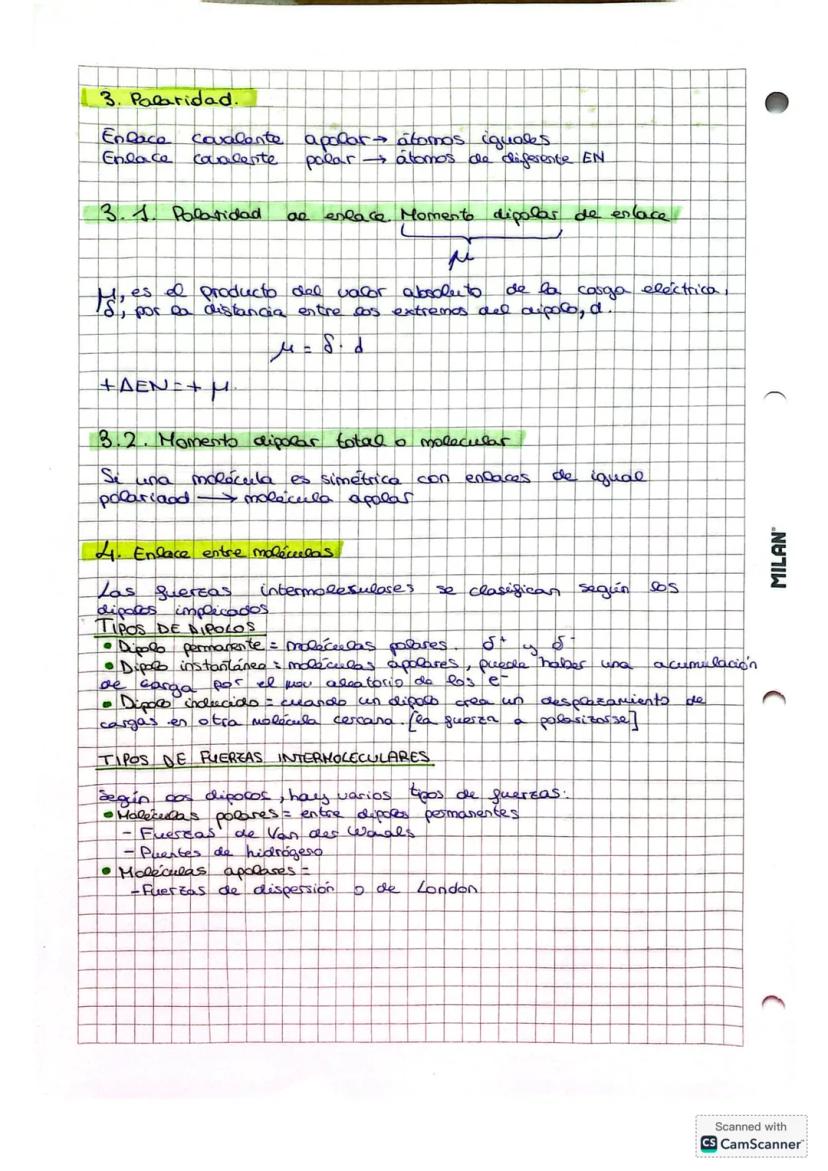 3. Polaridad.
Enlace covalente apolar → átomos iguales
Enlace covalente polar → átomos de diferente EN
3.1. Polaridad de enlace Momento dipolar de enlace
μ
μ, es el producto del valor absoluto de la carga eléctrica,
δ, por la distancia entre los extremos del dipolo, d.
μ = δ · d
+ΔEN = + μ.
3.2. Momento dipolar total o molecular
Si una molécula es simétrica con enlaces de igual
polaridad → molécula apolar
4. Enlace entre moléculas
Las fuerzas intermoleculares se clasifican según los
dipolos implicados
TIPOS DE DIPOLOS
• Dipolo permanente = moléculas polares. δ⁺ y δ⁻
• Dipolo instantáneo = moléculas apolares, puede haber una acumulación
de carga por el mov aleatorio de los e⁻
• Dipolo inducido = cuando un dipolo crea un desplazamiento de
cargas en otra molécula cercana. [la fuerza a polarizarse]
TIPOS DE FUERZAS INTERMOLECULARES
Según los dipolos, hay varios tipos de fuerzas:
• Moléculas polares = entre dipolos permanentes
- Fuerzas de Van der Waals
- Puentes de hidrógeno
• Moléculas apolares =
- Fuerzas de dispersión o de London
MILAN®
Scanned with
CS CamScanner™